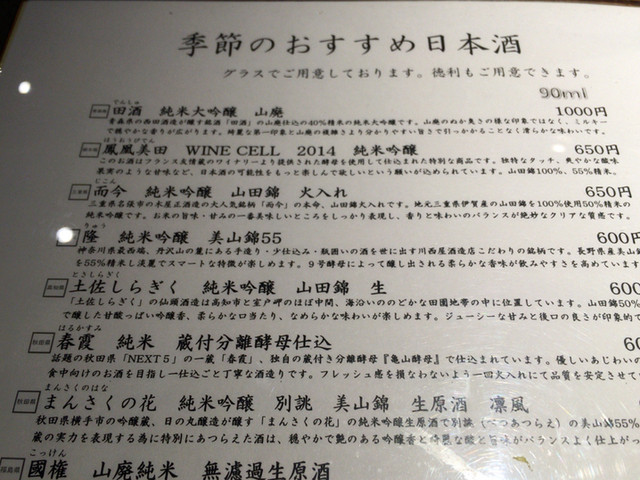 季節のおすすめ日本酒
グラスでご用意しております。徳利もご用意できます。
90ml
でんしゅ
田酒 純米大吟醸 山廃 1000円
青森県の西田酒造が醸す銘酒「田酒」の山廃仕込の40%精米の純米大吟醸です。山廃のぬか臭さの様な印象ではなく、ミルキー
で穏やかな香りが広がります。綺麗な第一印象と山廃の複雑さより分かりやすい旨さで引っかかることなく滑らかな味わいです。
ほうおうびでん
鳳凰美田 WINE CELL 2014 純米吟醸 650円
このお酒はフランス友情蔵のワイナリーより提供された酵母を使用して仕込まれた特別な商品です。独特なタッチ、爽やかな酸味
果実のような甘味など、日本酒の可能性をもっと楽しんで欲しいという願いが込められています。山田錦100%、55%精米。
三重県
じこん
而今 純米吟醸 山田錦 火入れ 650円
三重県名張市の木屋正酒造の大人気銘柄「而今」の本命、山田錦火入れです。地元三重県伊賀産の山田錦を100%使用50%精米の
純米吟醸です。お米の旨味・甘みの一番美味しいところをしっかり表現し、香りと味わいのバランスが絶妙なクリアな質感です。
りゅう
隆 純米吟醸 美山錦55 600円
神奈川県最西端、丹沢山の麓にある手造り・少仕込み・瓶囲いの酒を世に出す川西屋酒造店こだわりの銘柄です。長野県産美山錦
を55%精米し淡麗でスマートな特徴が楽しめます。9号酵母によって醸し出される柔らかな香味が飲みやすさを高めています
高知県
とさしらぎく
土佐しらぎく 純米吟醸 山田錦 生 600
「土佐しらぎく」の仙頭酒造は高知市と室戸岬のほぼ中間、海沿いののどかな田園地帯の中に位置しています。山田錦50%
で醸した甘酸っぱい吟醸香、柔らかな口当たり、なめらかな味わいが楽しめます。ジューシーな甘みと後口の良さが印象的で
秋田県
はるかすみ
春霞 純米 蔵付分離酵母仕込 60
話題の秋田県「NEXT5」の一蔵「春霞」、独自の蔵付き分離酵母『亀山酵母』で仕込まれています。優しいあじわいの
食中向けのお酒を目指し一仕込ごと丁寧な酒造りです。フレッシュ感を損なわないよう一回火入れにて品質を安定させて
秋田県
まんさくのはな
まんさくの花 純米吟醸 別誂 美山錦 生原酒 凛風
秋田県横手市の吟醸蔵、日の丸醸造が醸す「まんさくの花」の純米吟醸生原酒で別誂(べつあつらえ)の美山錦55%
蔵の実力を表現する為に特別にあつらえた酒は、穏やかで艶のある吟醸香と綺麗な酸と旨味がバランスよく仕上がっ
福島県
こっけん
國権 山廃純米 無濾過生原酒